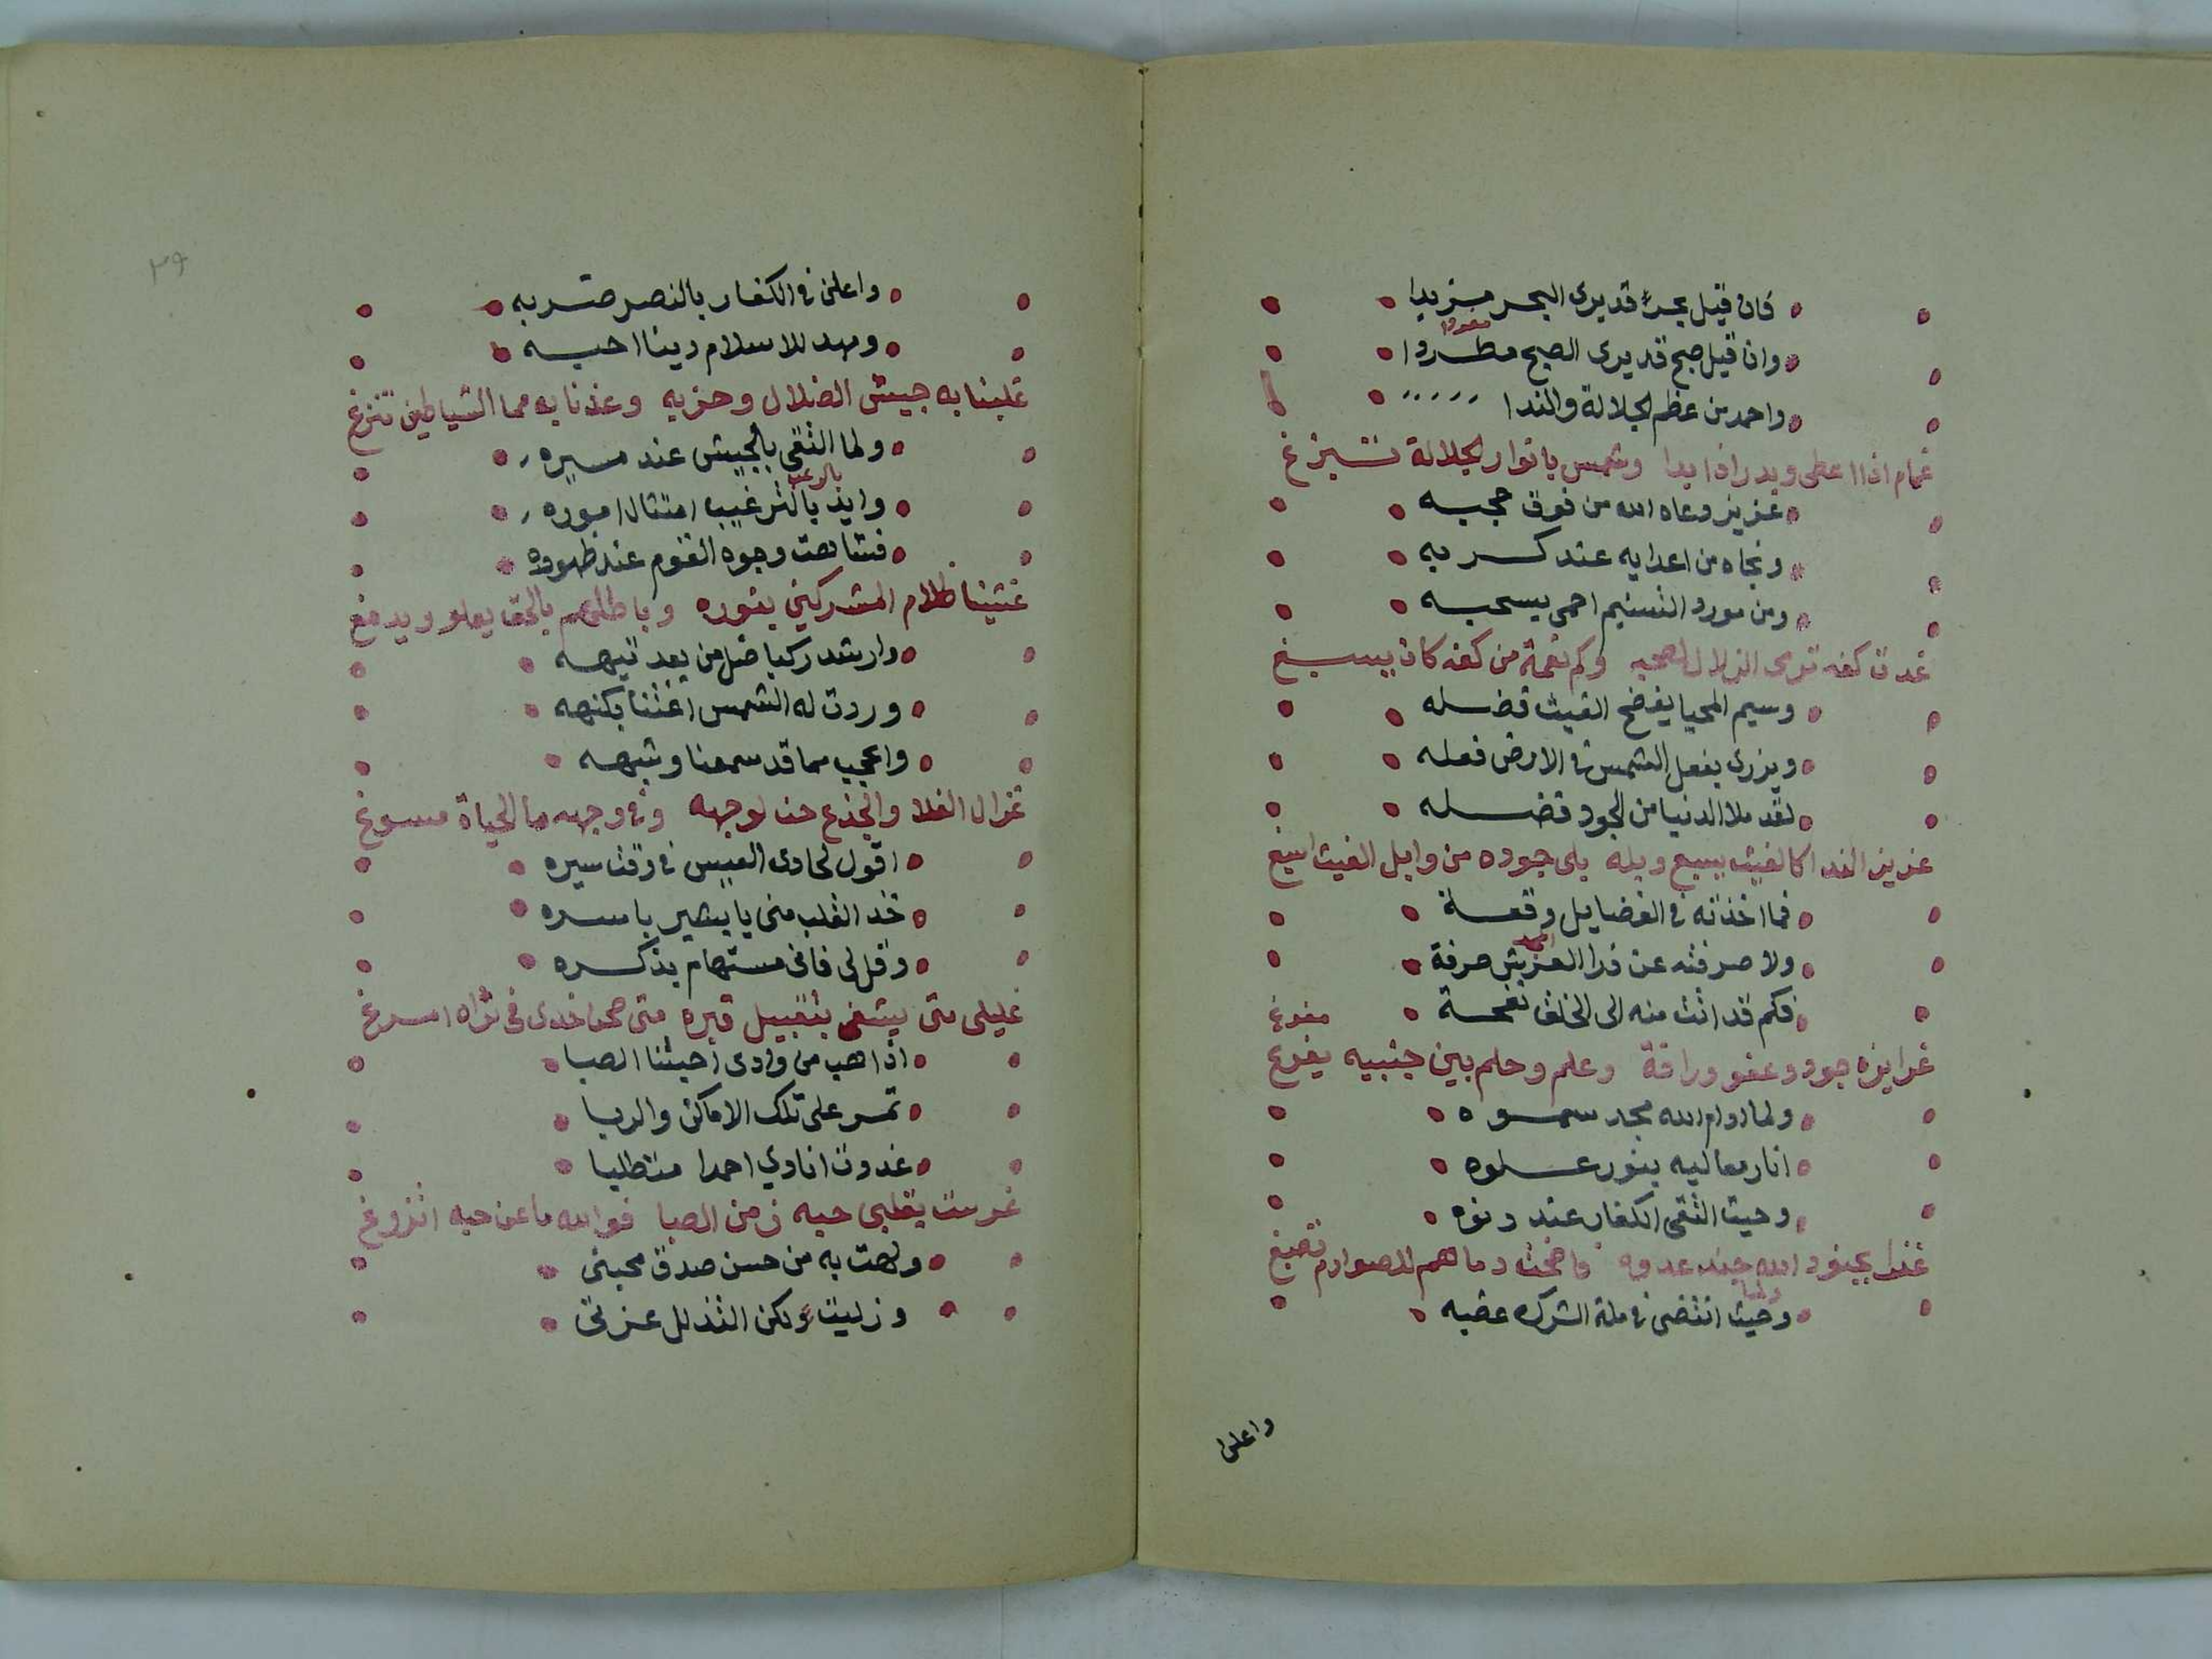 فان قيل بحر قد يرى البحر مزبدا
وان قيل صبح قد يرى الصبح مطردا
واحمد من عظم الجلالة والندا
غمام اذا اعطى وبدر اذا بدا وشمس بانوار الجلالة تبزغ
عزيز دعاه الله من فوق حجبه
ونجاه من اعدايه عند كربه
ومن مورد التسنيم احمى يسحبه
غدت كفه تروى الزلال لصحبه وكم نعمة من كفه كان يسبغ
وسيم المحيا يفضح الغيث فضله
ويزرى بفعل الشمس في الارض فعله
لقد ملا الدنيا من الجود فضله
عزيز الندا كالغيث يسبع وبله بلى جوده من وابل الغيث اسبغ
فما اخذته في الفضايل وقعة
ولا صرفته عن ذرا العرش صرفة
فكم قد اتت منه الى الخلق نفحة
مفرغ
غرايزه جود وعفو ورافة وعلم وحلم بين جنبيه يفرغ
ولما ادام الله مجد سموه
انار معاليه بنور علوه
وحيث التقى الكفار عند دنوه
غزا بجنود الله جند عدوه فاضحت دماهم للصوارم تصبغ
وحيث انتضى في ملة الشرك عضبه
واعلن
٣٩
واعلن في الكفار بالنصر ضربه
ومهد للاسلام دينا احبه
غلبنا به جيش الضلال وحزبه وعذنا به مما الشياطين تنزغ
ولما التقى بالجيش عند مسيره
بالرعب
وايد بالترغيب امتثال اموره
فشاهت وجوه القوم عند ظهوره
غشينا ظلام المشركين بنوره وباطلهم بالحق يعلو ويدمغ
وارشد ركبا ضل من بعد تيهه
وردت له الشمس اغثنا بكنهه
واعجب مما قد سمعنا وشبهه
غزال الفلا والجذع حنا لوجهه وفي وجهه ما الحياة مسوغ
اقول لحادى العيس في وقت سيره
خذ القلب منى يا بشير باسره
وقل لى فانى مستهام بذكره
غليلى متى يشفى بتقبيل قبره متى صحن خدى في ثراه امرغ
اذا هب من وادى احبتنا الصبا
تمر على تلك الاماكن والربا
غدوت انادي احمدا متطلبا
غرست بقلبى حبه زمن الصبا فوالله ما عن حبه اتزوغ
ولهت به من حسن صدق محبتى
وزليت ولكن التذلل عزتى